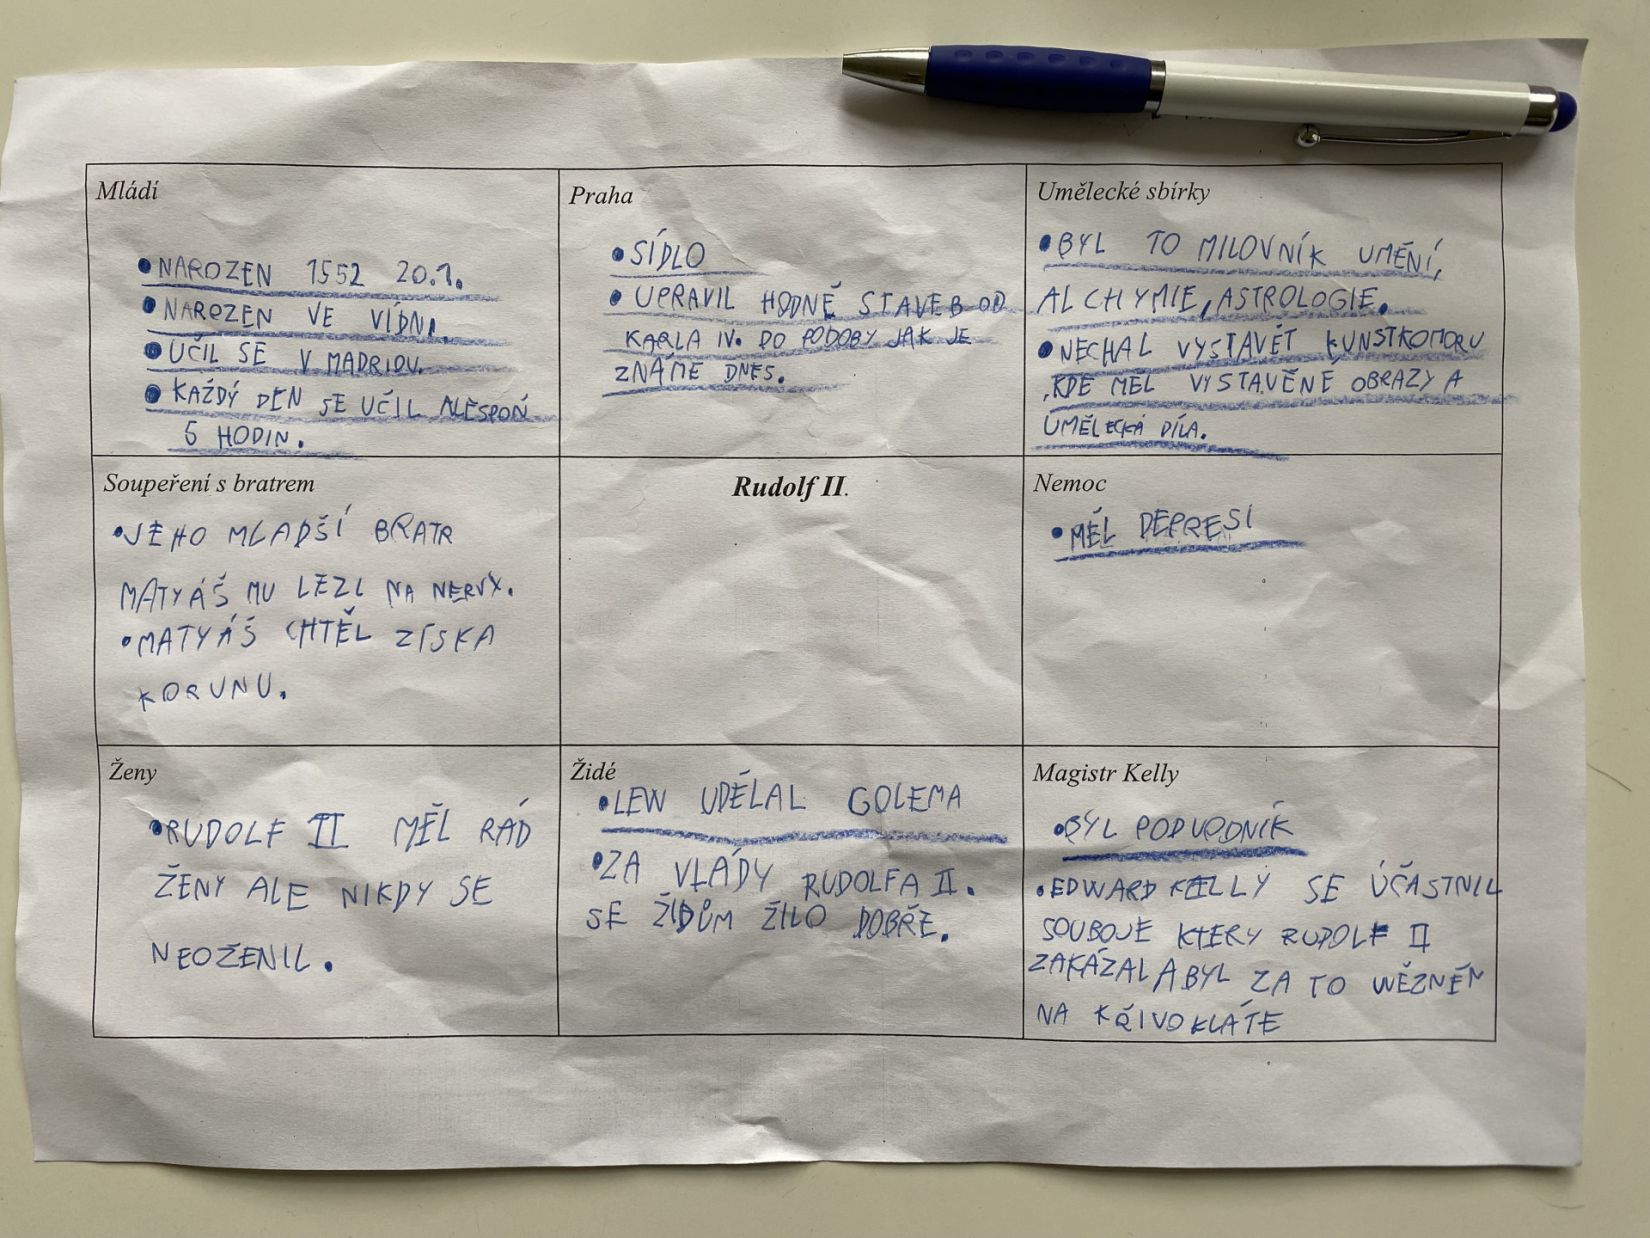 Mládí
• NAROZEN 1552 20.1.
• NAROZEN VE VÍDNI.
• UČIL SE V MADRIDU.
• KAŽDÝ DEN SE UČIL ALESPOŇ
5 HODIN.
Praha
• SÍDLO
• UPRAVIL HODNĚ STAVEB OD
KARLA IV. DO PODOBY JAK JE
ZNÁME DNES.
Umělecké sbírky
• BYL TO MILOVNÍK UMĚNÍ,
ALCHYMIE, ASTROLOGIE.
• NECHAL VYSTAVĚT KUNSTKOMORU
, KDE MĚL VYSTAVĚNÉ OBRAZY A
UMĚLECKÁ DÍLA.
Soupeření s bratrem
• JEHO MLADŠÍ BRATR
MATYÁŠ MU LEZL NA NERVY.
• MATYÁŠ CHTĚL ZÍSKA
KORUNU.
Rudolf II.
Nemoc
• MĚL DEPRESI
Ženy
• RUDOLF II MĚL RÁD
ŽENY ALE NIKDY SE
NEOŽENIL.
Židé
• LEW UDĚLAL GOLEMA
• ZA VLÁDY RUDOLFA II.
SE ŽIDŮM ŽILO DOBŘE.
Magistr Kelly
• BYL PODVODNÍK
• EDWARD KELLY SE ÚČASTNIL
SOUBOJE KTERY RUDOLF II
ZAKÁZAL A BYL ZA TO WĚZNĚN
NA KŘIVOKLÁTE